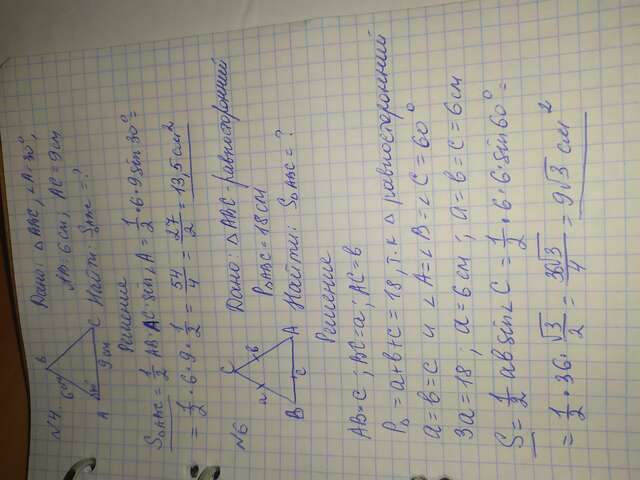 N4. Дано: △ABC, ∠A=30°,
AB=6см, AC=9см
Найти: S△ABC=?
B
6см
30°
A 9см C
Решение
S△ABC = 1/2 AB·AC·sin∠A = 1/2·6·9 sin30° =
= 1/2·6·9·1/2 = 54/4 = 27/2 = 13,5 см²
N6 Дано: △ABC-равносторонний
P△ABC=18см
Найти: S△ABC=?
C
a b
B c A
Решение
AB=c; BC=a; AC=b
P△=a+b+c=18, т.к △ равносторонний
a=b=c и ∠A=∠B=∠C=60°
3a=18; a=6см; a=b=c=6см
S = 1/2 ab sin∠C = 1/2·6·6·sin60° =
= 1/2·36·√3/2 = 36√3/4 = 9√3 см²